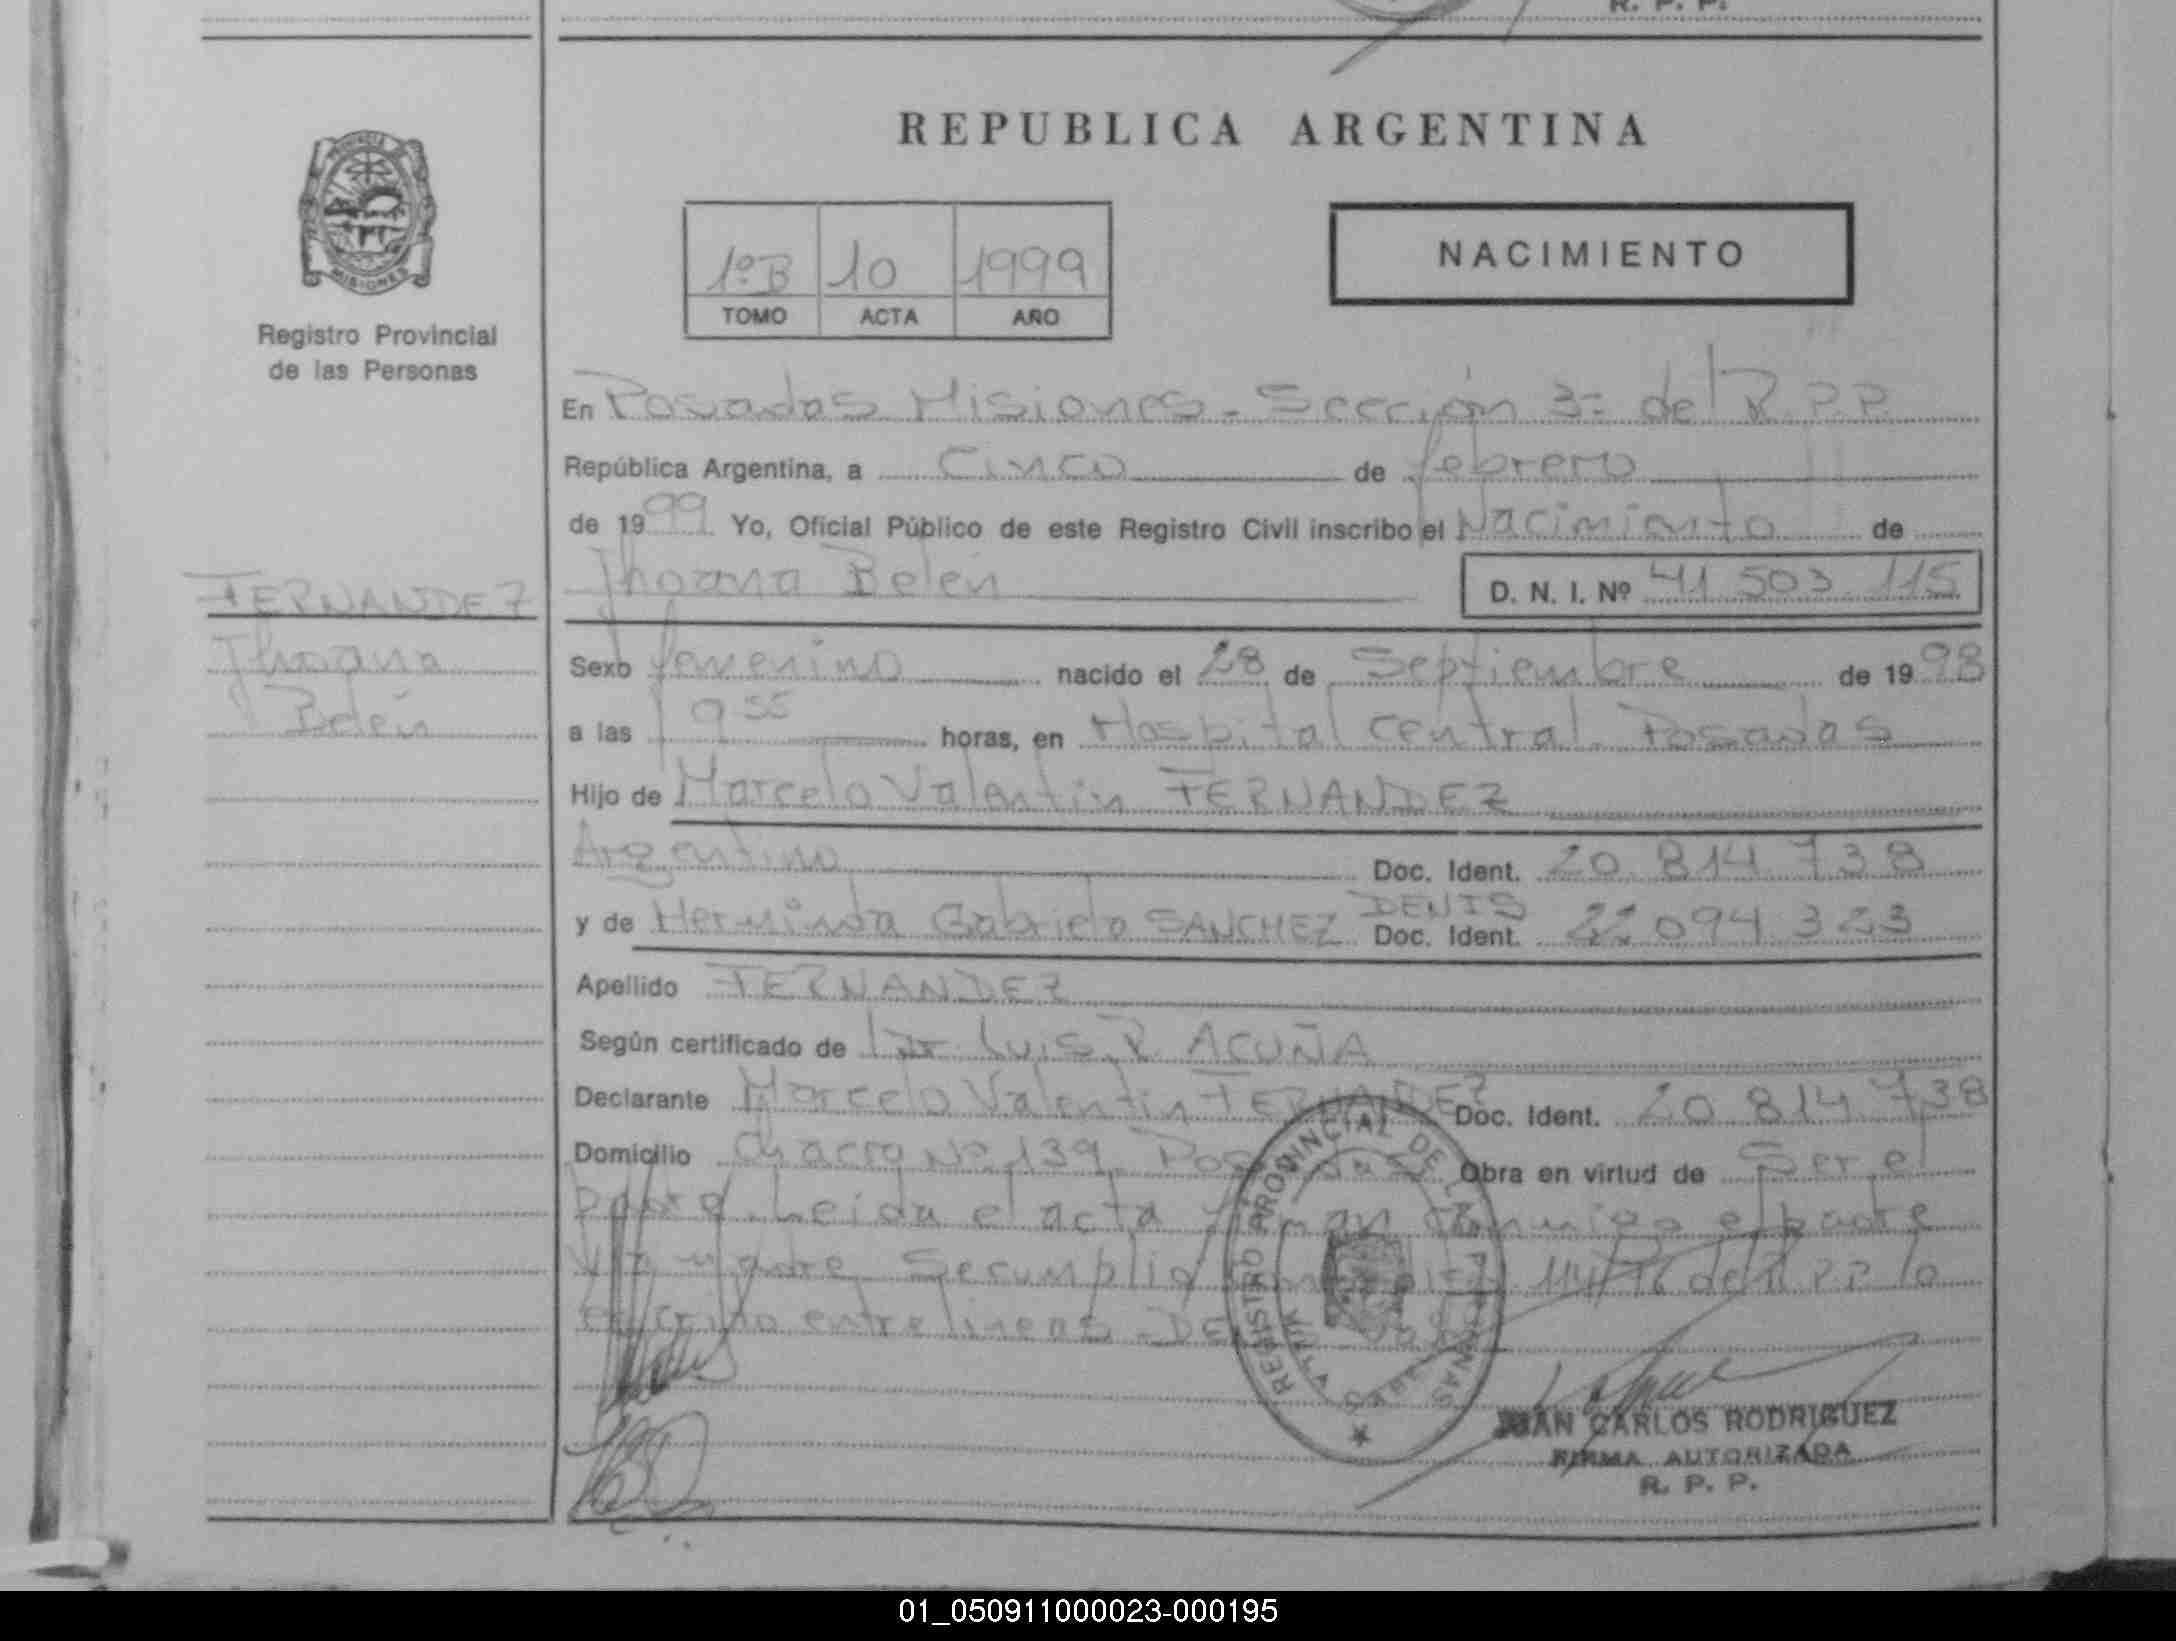 R. P. P.
REPUBLICA ARGENTINA
PROVINCIA DE
MISIONES
1º B 10 1999
TOMO ACTA AÑO
NACIMIENTO
Registro Provincial
de las Personas
En Posadas Misiones - Sección 3ª del R.P.P.
República Argentina, a Cinco de febrero
de 1999 Yo, Oficial Público de este Registro Civil inscribo el Nacimiento de
Jhoana Belén D. N. I. Nº 41 503 115
FERNANDEZ
Jhoana
Belén
Sexo femenino nacido el 28 de Septiembre de 1998
a las 9 55 horas, en Hospital Central. Posadas
Hijo de Marcelo Valentin FERNANDEZ
Argentino Doc. Ident. 20 814 738
y de Herminda Gabriela SANCHEZ DENIS Doc. Ident. 22 094 323
Apellido FERNANDEZ
Según certificado de Dr. Luis R. ACUÑA
Declarante Marcelo Valentin FERNANDEZ Doc. Ident. 20 814 738
Domicilio Chacra Nº 139 Posadas Obra en virtud de Ser el
padre. Leida el acta firman conmigo el padre
y la madre. Se cumplió 114/96 del R.P.P. lo
escrito entre lineas - DENIS
REGISTRO PROVINCIAL DE LAS PERSONAS
JUAN CARLOS RODRIGUEZ
FIRMA AUTORIZADA
R. P. P.
01_050911000023-000195